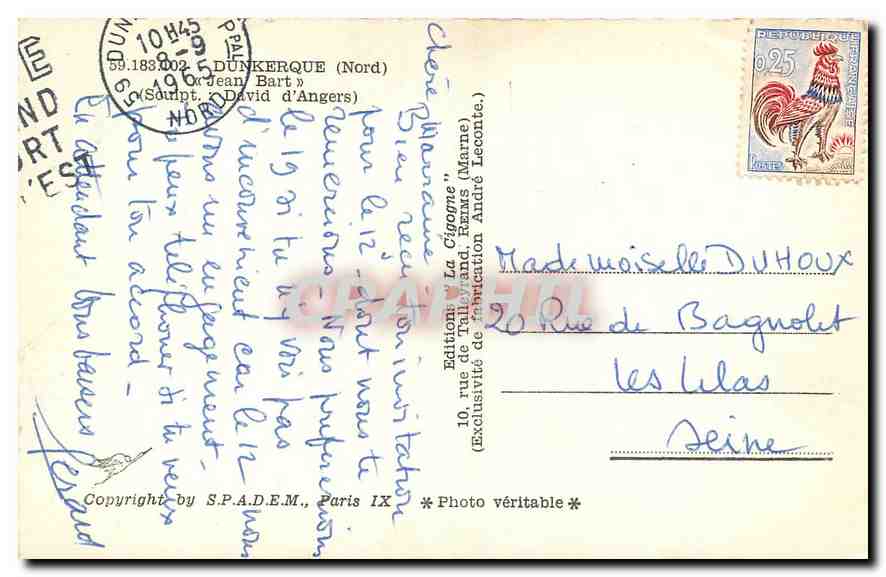 E
ND
ORT
L'EST
59 DUNKERQUE PPAL
10 H45
8-9
1965
NORD
59.183.002 - DUNKERQUE (Nord)
« Jean Bart »
(Sculpt. David d'Angers)
Chère Marraine
Bien reçu ton invitation
pour le 12 - dont nous te
remercions - Nous préférerions
le 19 si tu n'y vois pas
d'inconvénient car le 12 nous
avons un engagement -
Tu peux téléphoner si tu veux
pour ton accord -
En attendant bons baisers
Gérard
Editions "La Cigogne"
10, rue de Talleyrand, REIMS (Marne)
(Exclusivité de fabrication André Leconte.)
REPUBLIQUE FRANÇAISE
0,25
POSTES
Mademoiselle DUHOUX
20 Rue de Bagnolet
Les Lilas
Seine
CPARHIL
Copyright by S.P.A.D.E.M., Paris IX * Photo véritable *